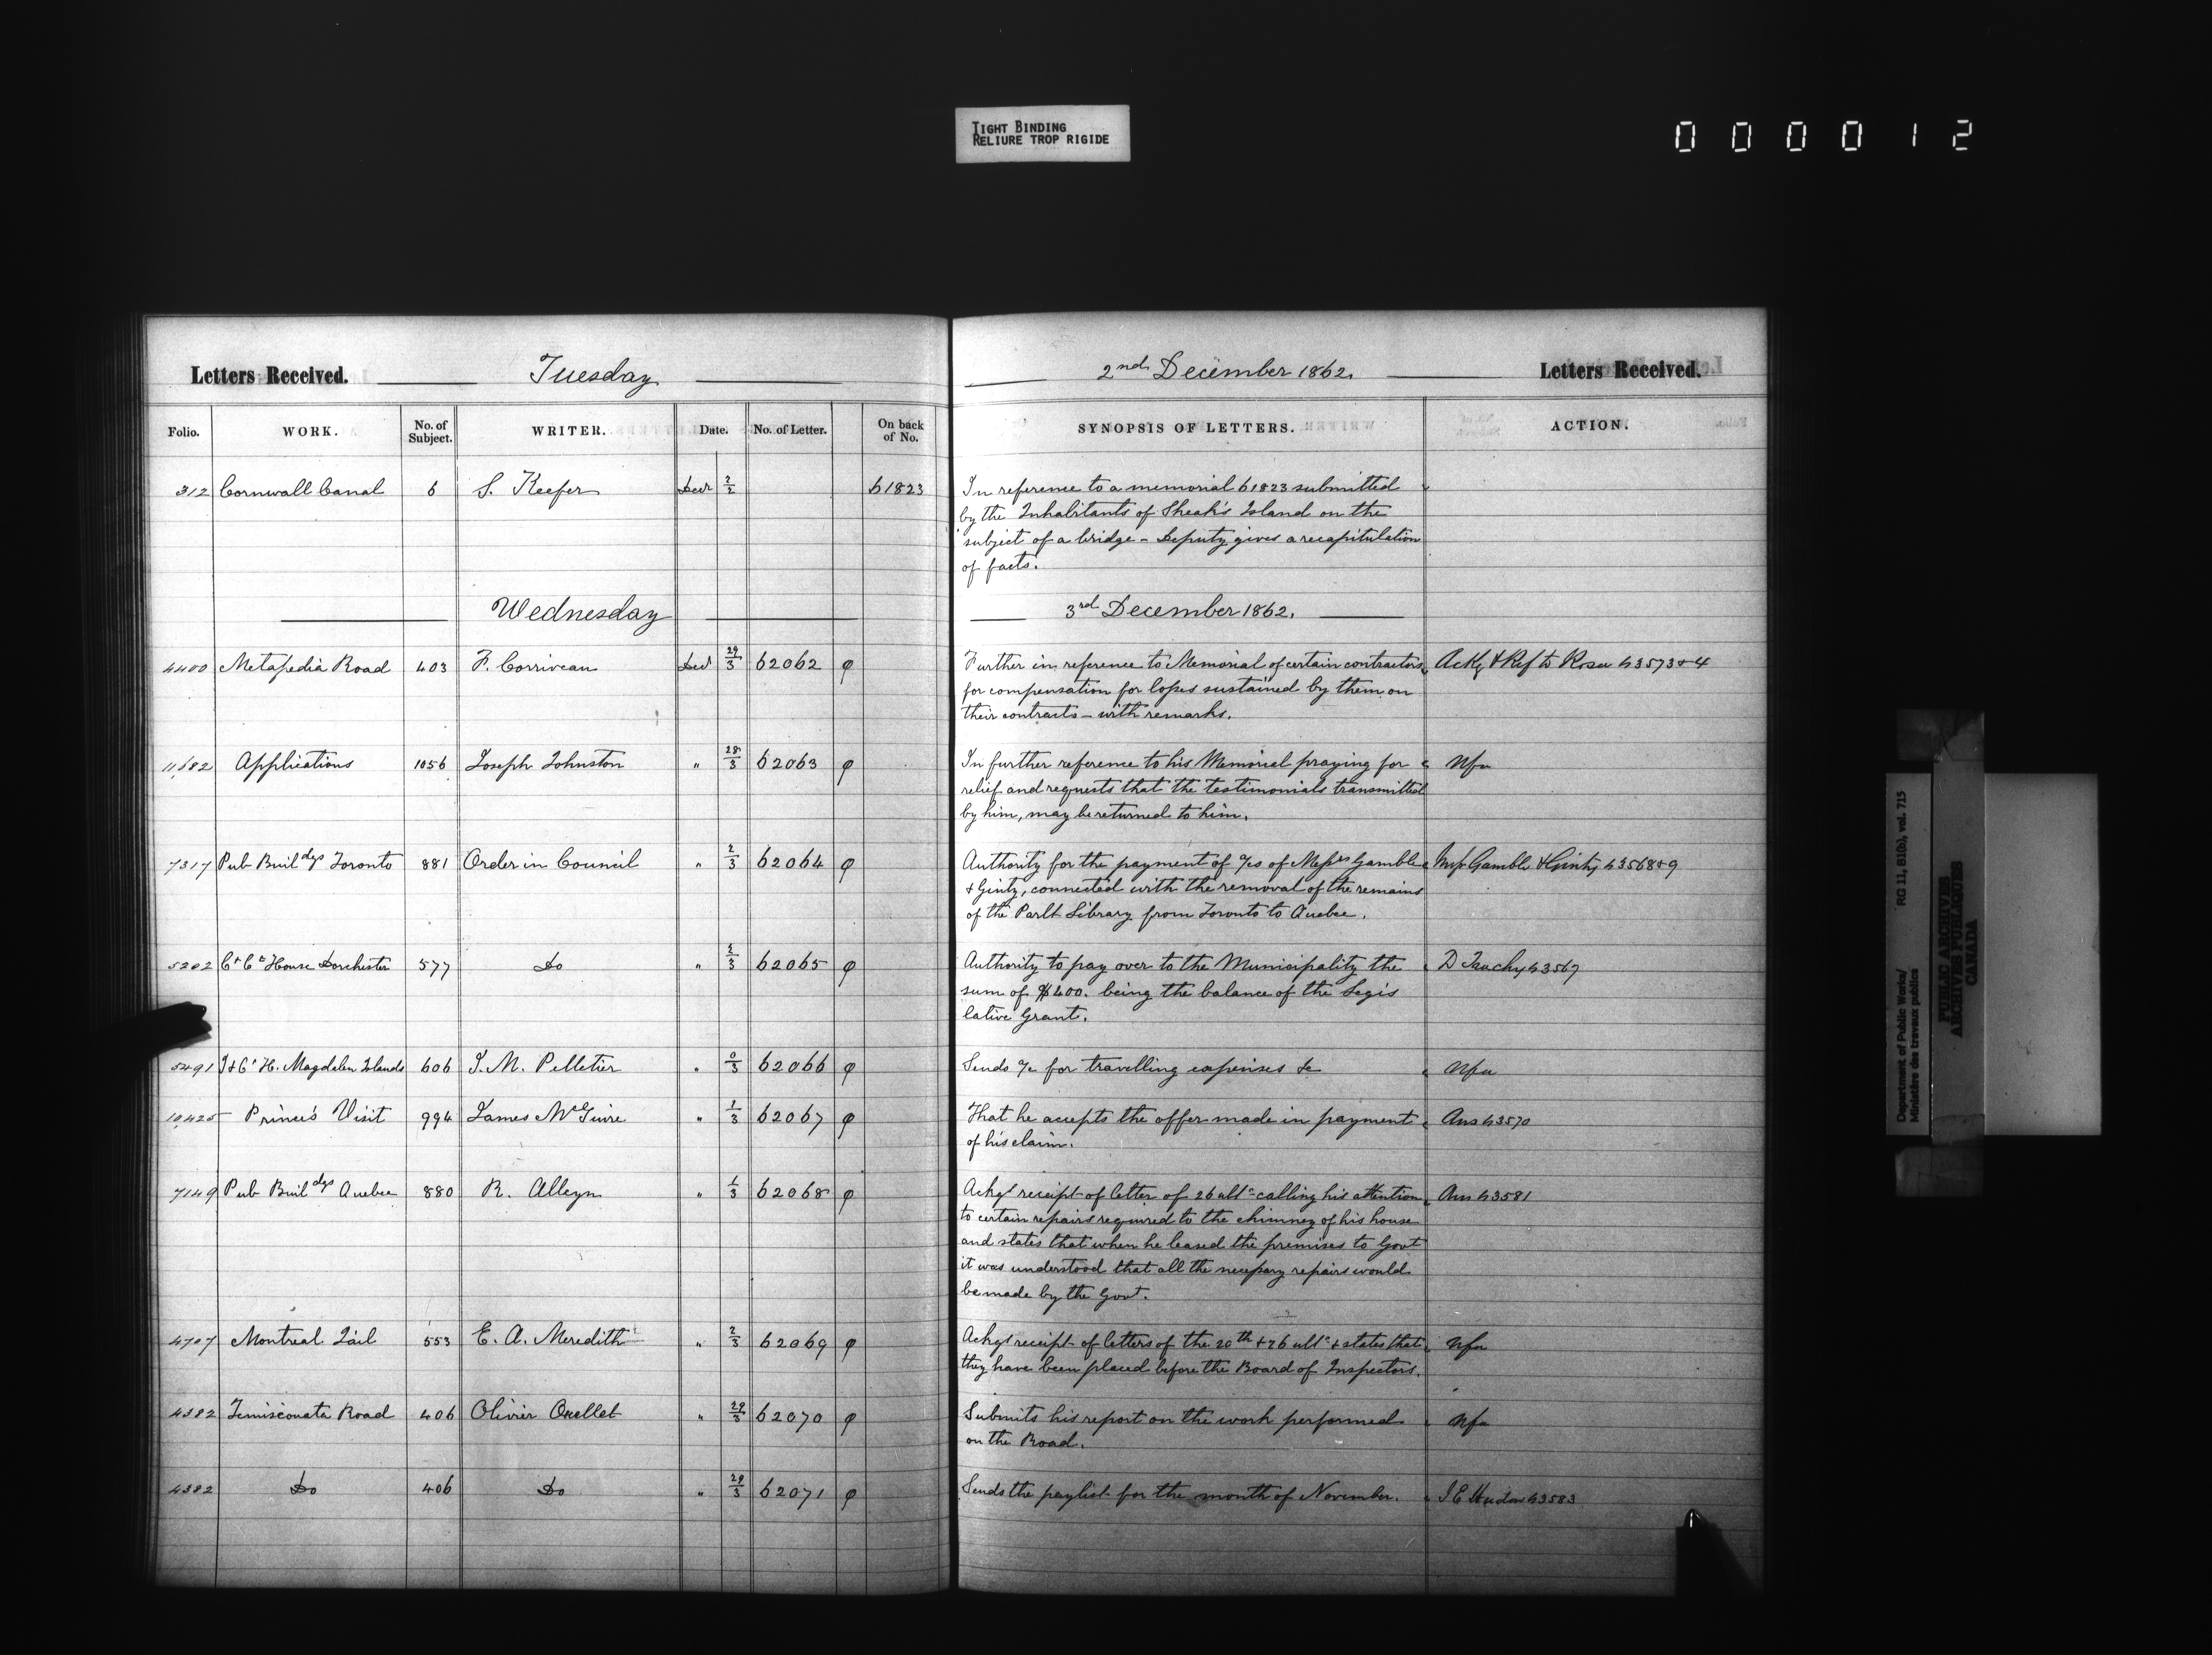 TIGHT BINDING
RELIURE TROP RIGIDE
000012
Letters Received. Tuesday 2nd December 1862. Letters Received.
Folio. WORK. No. of Subject. WRITER. Date. No. of Letter. On back of No. SYNOPSIS OF LETTERS. ACTION.
312 Cornwall Canal 6 S. Keefer Decr 2/2 61823 In reference to a memorial 61823 submitted
by the Inhabitants of Sheak's Island on the
subject of a bridge - Deputy gives a recapitulation
of facts.
Wednesday 3rd December 1862.
4400 Metapedia Road 403 F. Corriveau Decr 29/3 62062 φ Further in reference to Memorial of certain contractors Ackg & Ref to Rosa 43573 & 4
for compensation for losses sustained by them on
their contracts - with remarks.
11,682 Applications 1056 Joseph Johnston " 28/3 62063 φ In further reference to his Memorial praying for Nfa
relief and requests that the testimonials transmitted
by him, may be returned to him.
7317 Pub Buildgs Toronto 881 Order in Council " 2/3 62064 φ Authority for the payment of a/cs of Messrs Gamble Mess Gamble & Ginty 43568 & 9
& Ginty, connected with the removal of the remains
of the Parlt Library from Toronto to Quebec.
5202 Ct Ct House Dorchester 577 Do " 2/3 62065 φ Authority to pay over to the Municipality the D Tachy 43567
sum of $400. being the balance of the Legis
lative Grant.
5491 J & Ct H. Magdalen Islands 606 J. M. Pelletier " 0/3 62066 φ Sends a/c for travelling expenses &c Nfa
10,425 Prince's Visit 994 James McGuire " 1/3 62067 φ That he accepts the offer made in payment Ans 43570
of his claim.
7149 Pub Buildgs Quebec 880 R. Alleyn " 1/3 62068 φ Ackgs receipt of letter of 26 ulto calling his attention Ans 43581
to certain repairs required to the chimney of his house
and states that when he leased the premises to Govt
it was understood that all the necessary repairs would
be made by the Govt.
4707 Montreal Jail 553 E. A. Meredith " 2/3 62069 φ Ackgs receipt of letters of the 20th & 26 ulto & states that Nfa
they have been placed before the Board of Inspectors.
4382 Temiscouata Road 406 Olivier Ouellet " 29/3 62070 φ Submits his report on the work performed Nfa
on the Road.
4382 Do 406 Do " 29/3 62071 φ Sends the paylist for the month of November. J E Hudon 43583
Department of Public Works/ RG 11, B1(b), vol. 715
Ministère des travaux publics
PUBLIC ARCHIVES
ARCHIVES PUBLIQUES
CANADA